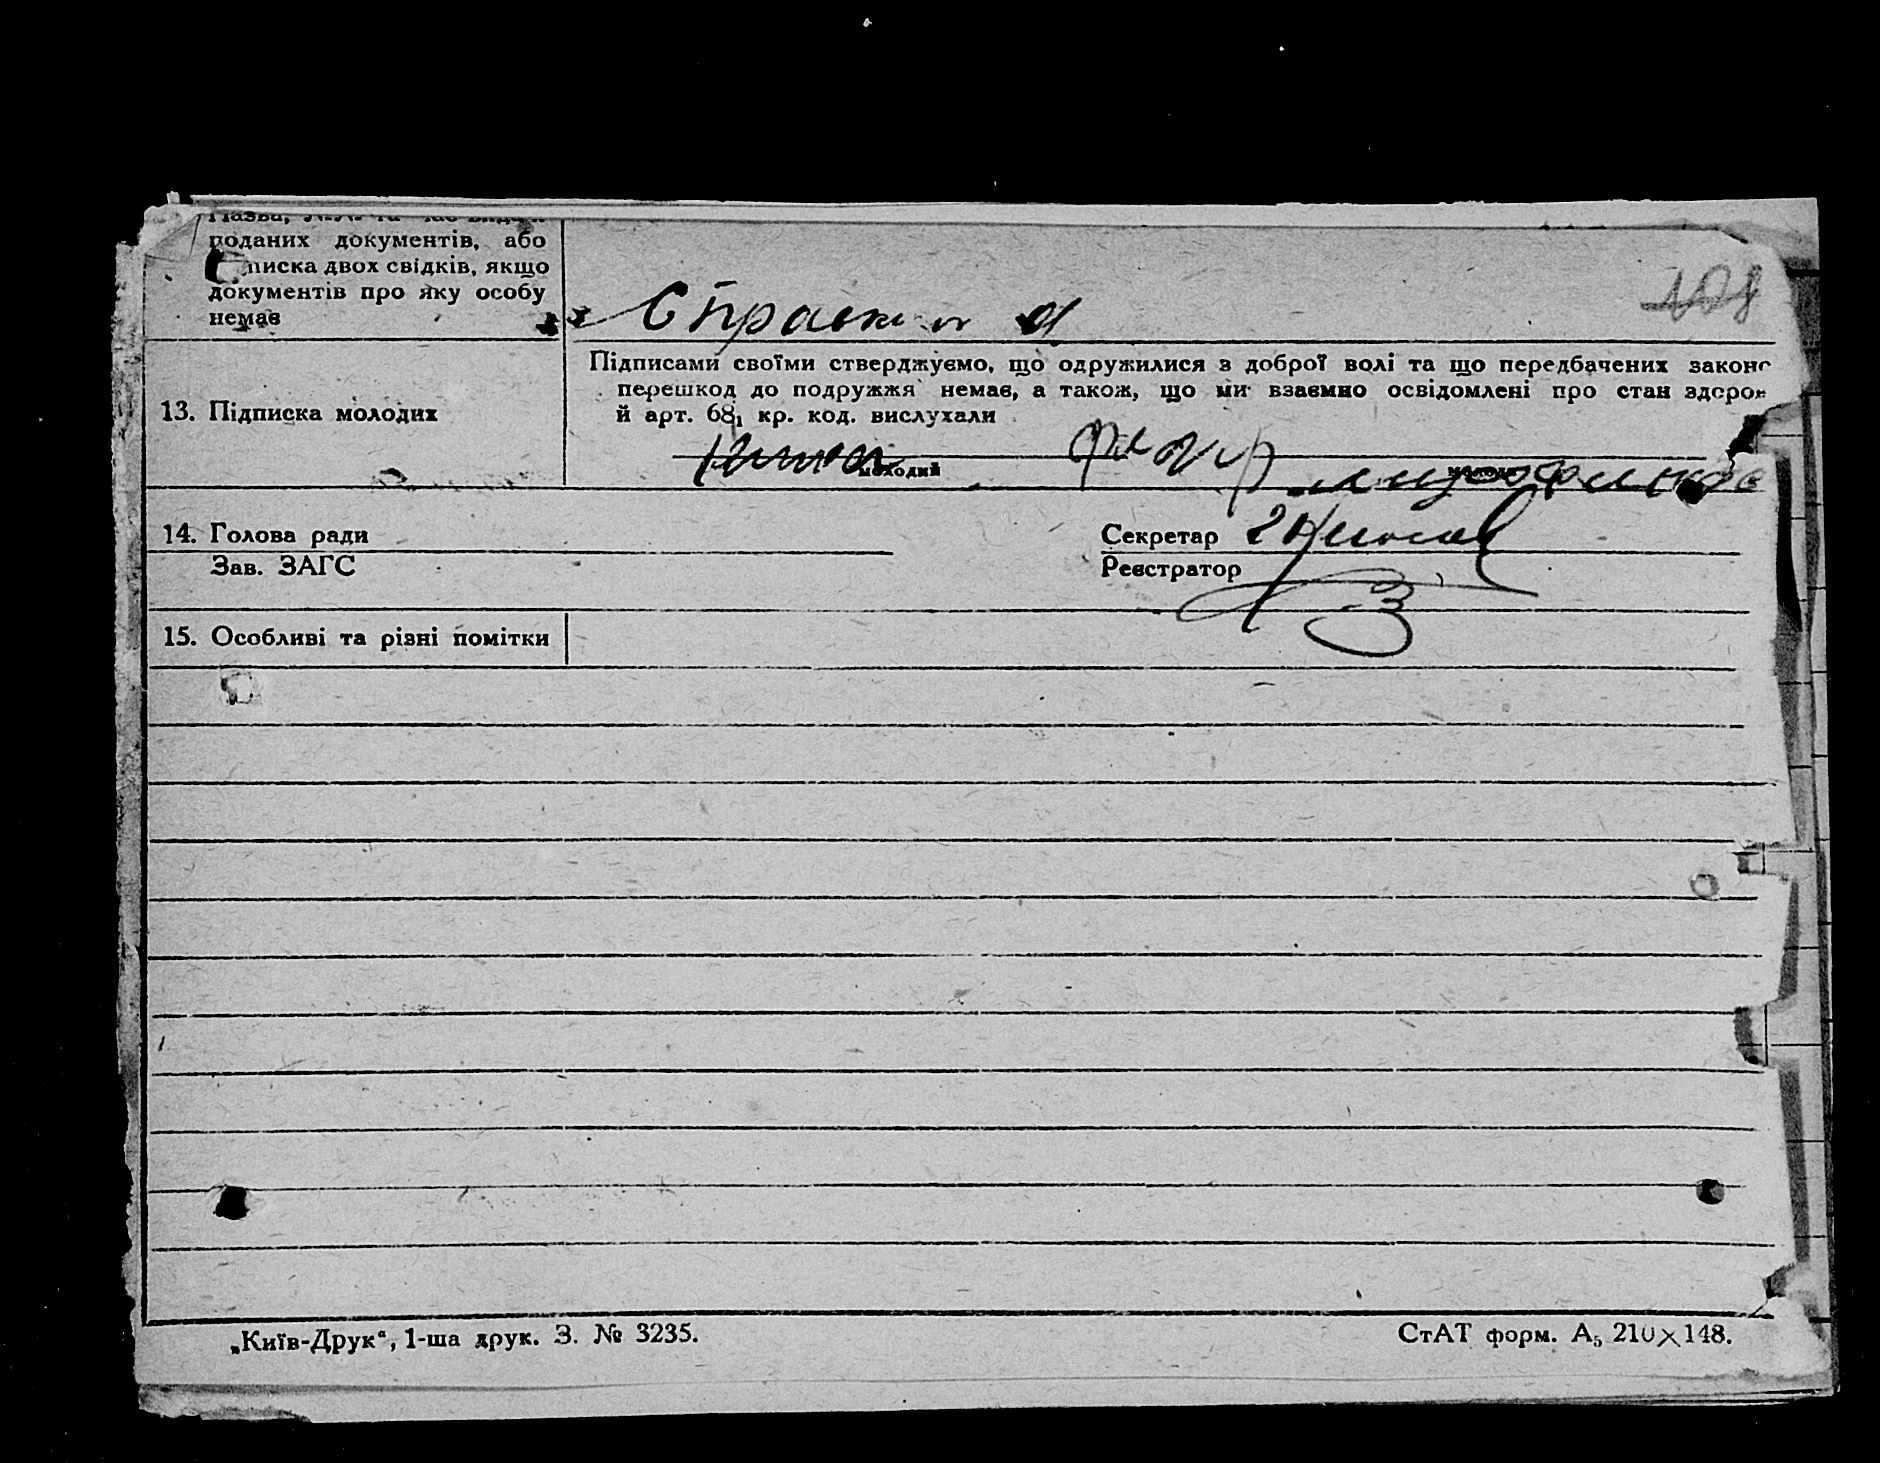 Назва, №№ та час видачі
поданих документів, або
писка двох свідків, якщо
документів про яку особу
немає
108
Підписами своїми стверджуємо, що одружилися з доброї волі та що передбачених законо
перешкод до подружжя немає, а також, що ми взаємно освідомлені про стан здоров
й арт. 68₁ кр. код. вислухали
13. Підписка молодих
молодий
молода
14. Голова ради
Секретар
Зав. ЗАГС
Реєстратор
15. Особливі та різні помітки
„Київ-Друк“, 1-ша друк. З. № 3235.
СтАТ форм. А₅ 210×148.